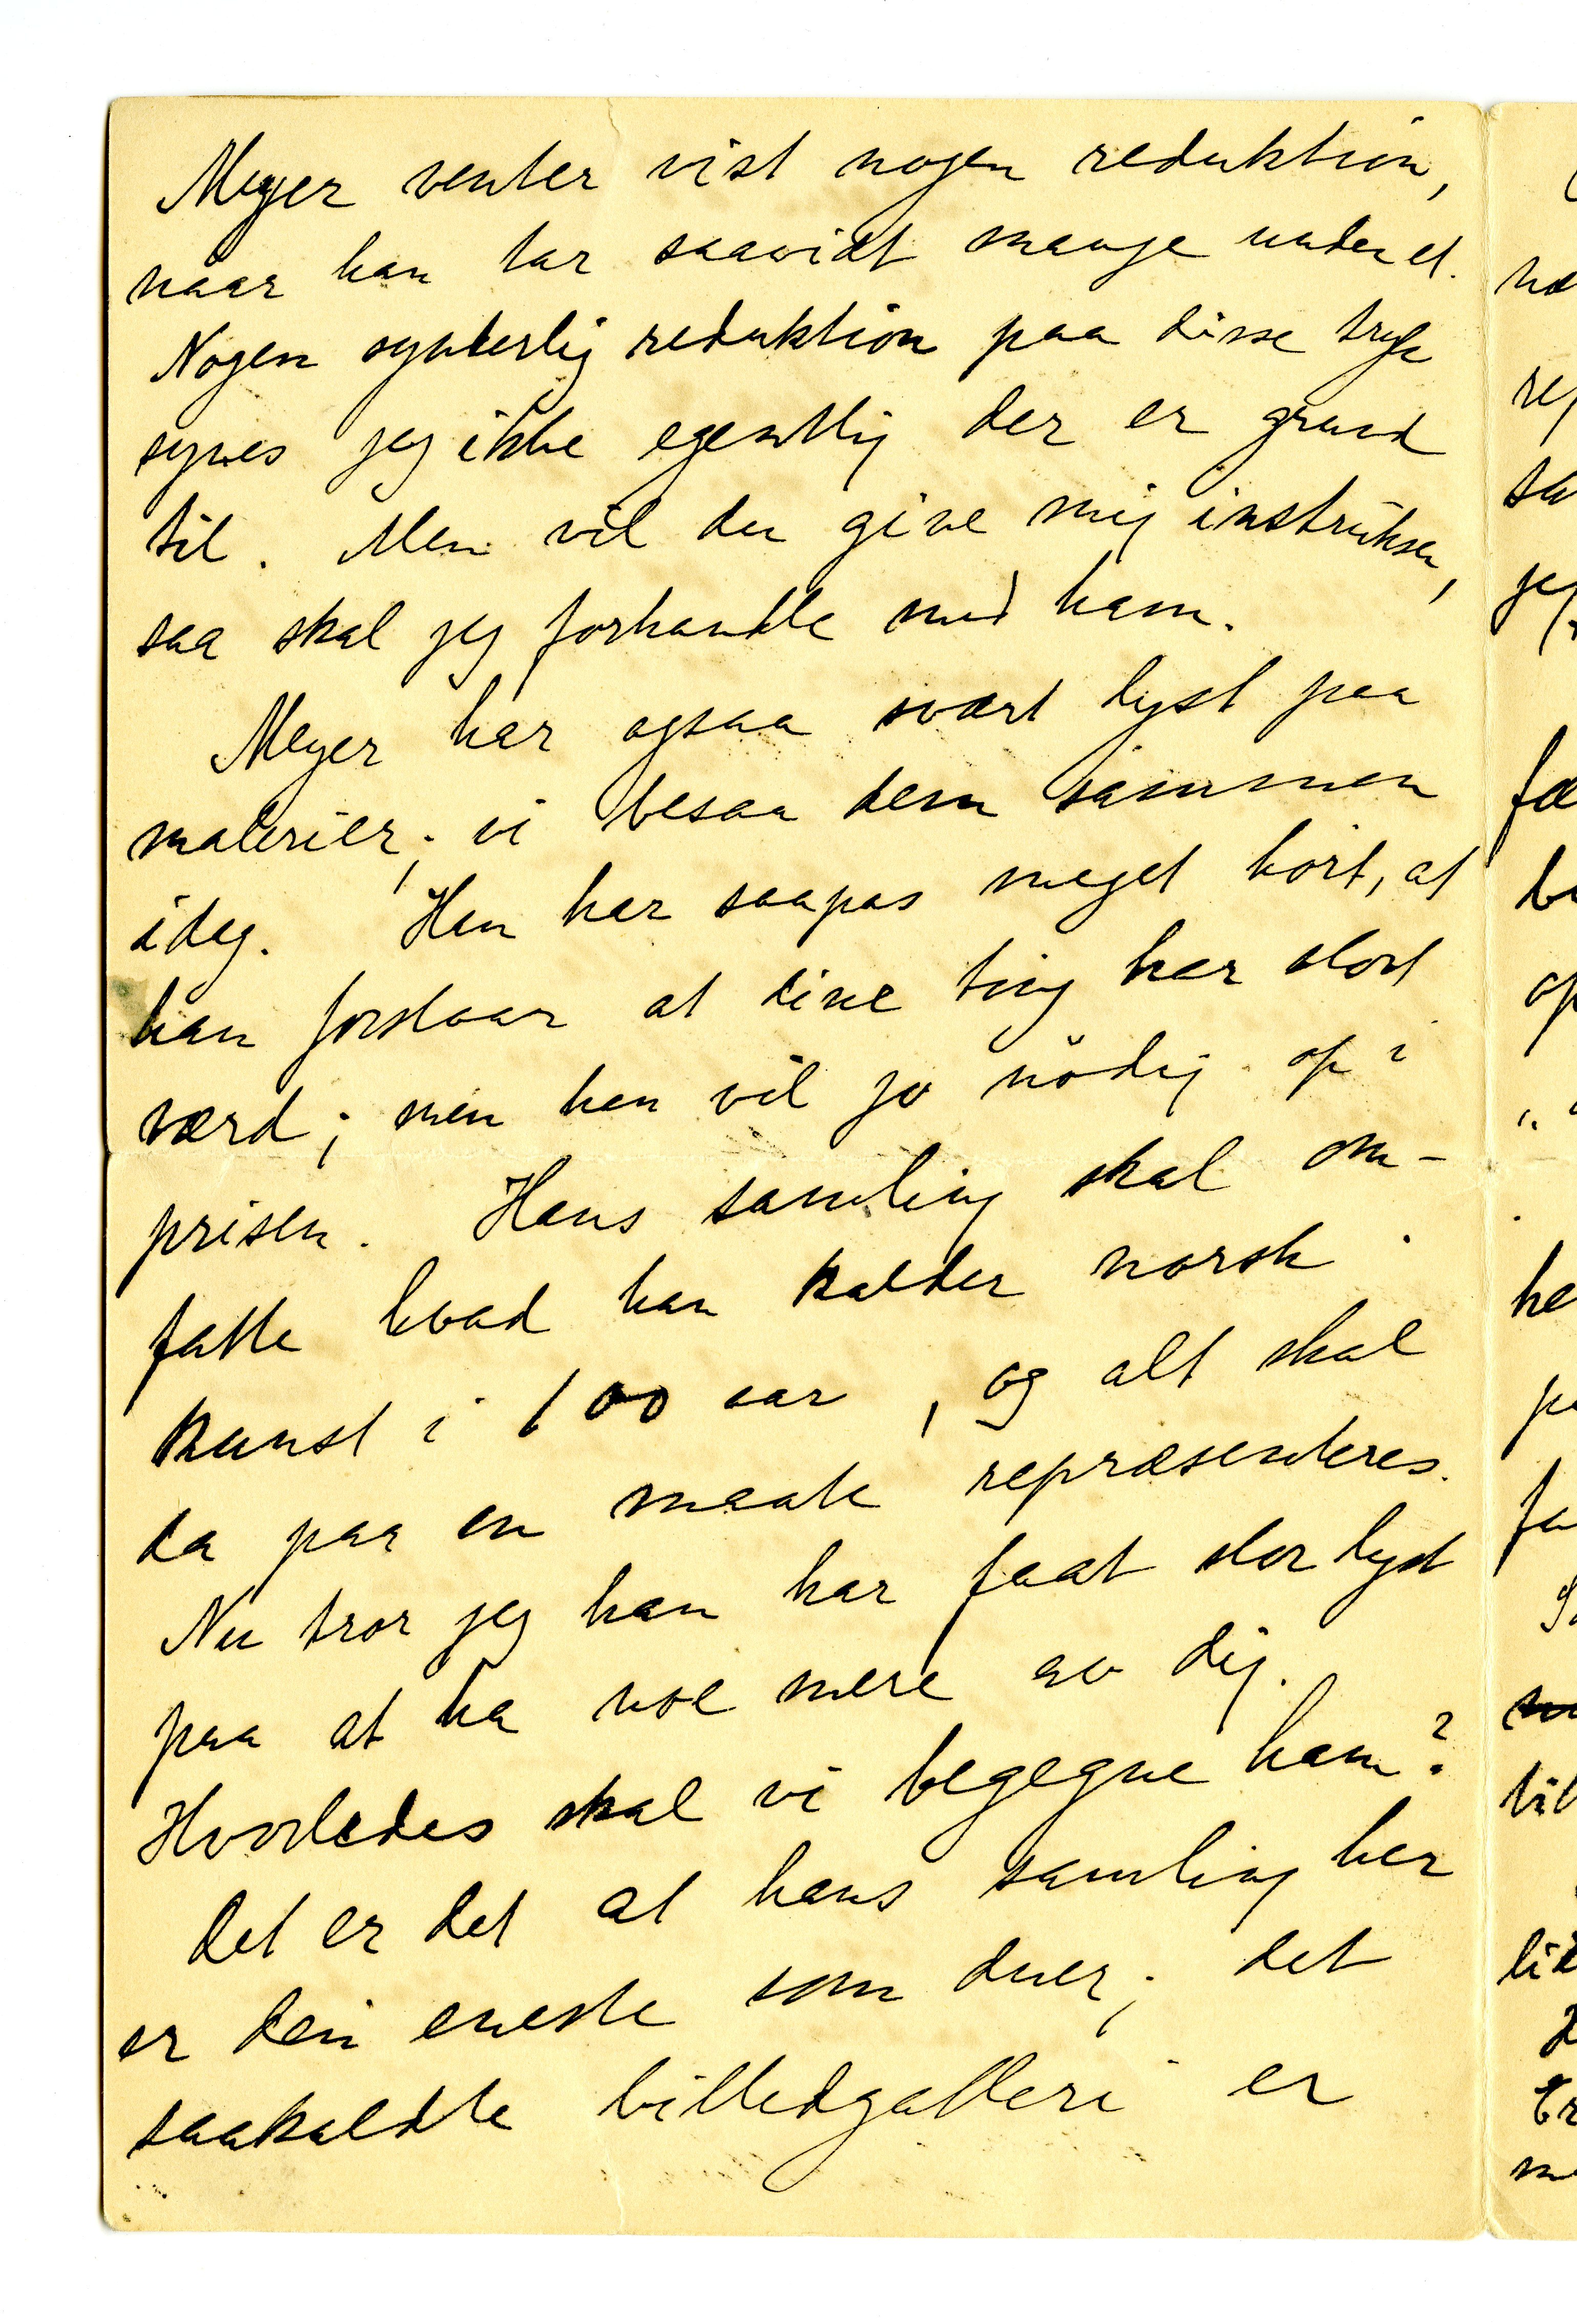 Meyer venter vist nogen reduktion,
naar han tar saavidt mange under et.
Nogen synderlig reduktion paa disse tryk
synes jeg ikke egentlig der er grund
til. Men vil du give mig instrukser,
saa skal jeg forhandle med ham.
Meyer har ogsaa svært lyst paa
malerier; vi besaa dem sammen
idag. Han har saapas meget hört, at
han forstaar at dine ting har stort
værd; men han vil jo nödig op i
prisen. Hans samling skal om-
fatte hvad han kalder norsk
kunst i 100 aar, og alt skal
da paa en maate repræsenteres.
Nu tror jeg han har faat stor lyst
paa at ha noe mere av dig.
Hvorledes skal vi begegne ham?
Det er det at hans samling her
er den eneste som duer; det
saakaldte billedgalleri er